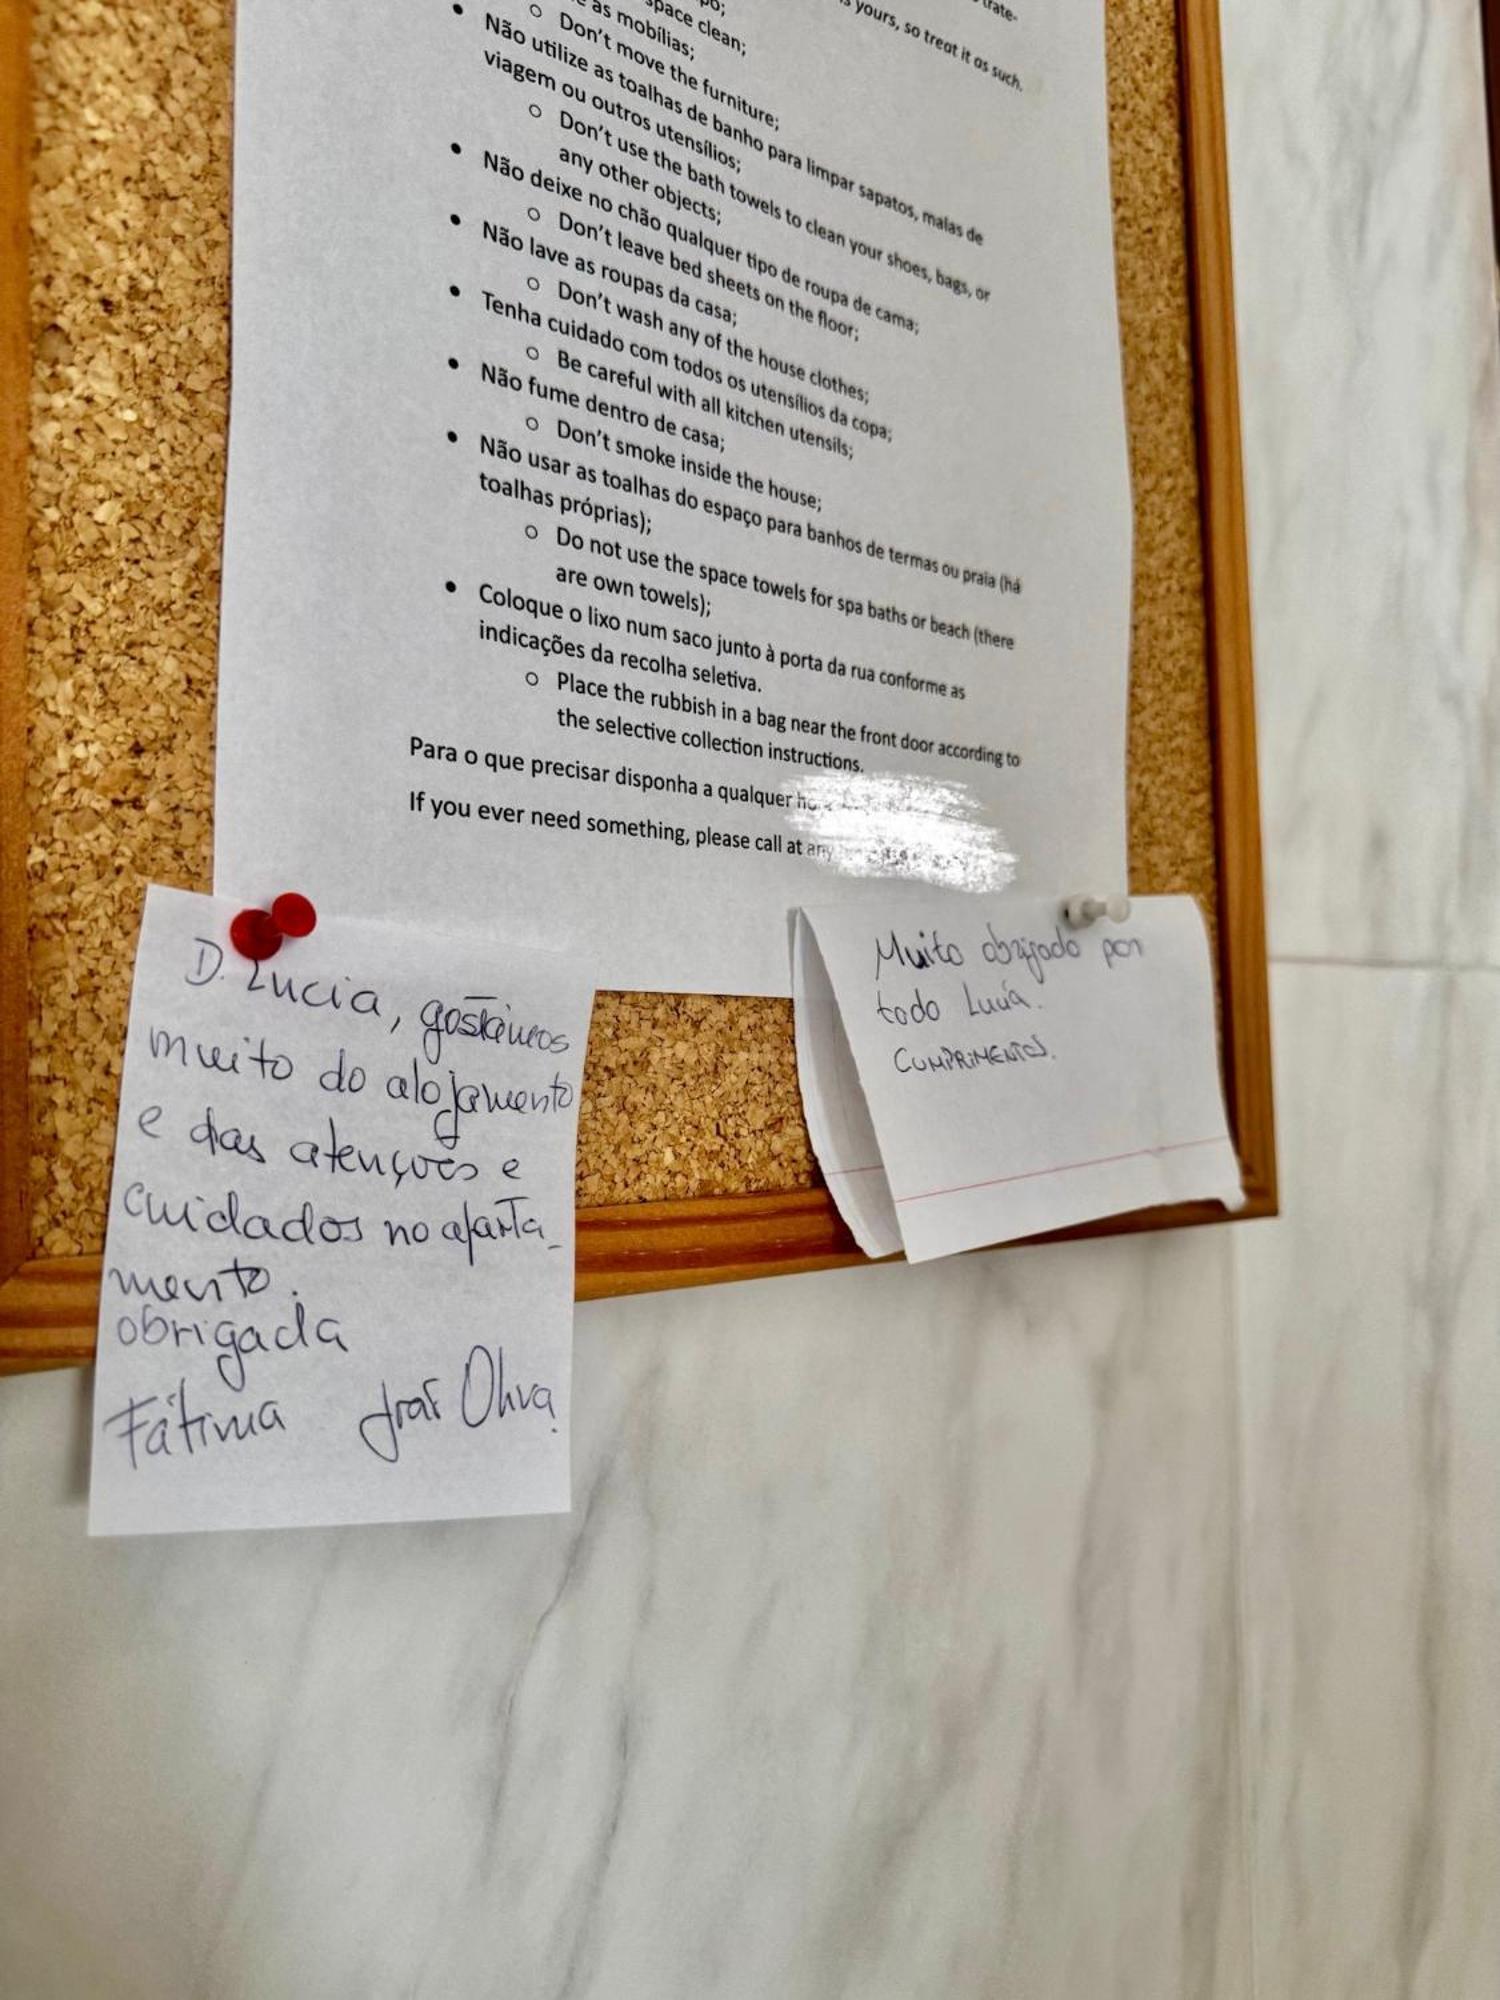 s yours, so treat it as such.
space clean;
as mobílias;
○ Don't move the furniture;
• Não utilize as toalhas de banho para limpar sapatos, malas de
viagem ou outros utensílios;
○ Don't use the bath towels to clean your shoes, bags, or
any other objects;
• Não deixe no chão qualquer tipo de roupa de cama;
○ Don't leave bed sheets on the floor;
• Não lave as roupas da casa;
○ Don't wash any of the house clothes;
• Tenha cuidado com todos os utensílios da copa;
○ Be careful with all kitchen utensils;
• Não fume dentro de casa;
○ Don't smoke inside the house;
• Não usar as toalhas do espaço para banhos de termas ou praia (há
toalhas próprias);
○ Do not use the space towels for spa baths or beach (there
are own towels);
• Coloque o lixo num saco junto à porta da rua conforme as
indicações da recolha seletiva.
○ Place the rubbish in a bag near the front door according to
the selective collection instructions.
Para o que precisar disponha a qualquer
If you ever need something, please call at any
D. Lucia, gostámos
muito do alojamento
e das atenções e
cuidados no aparta_
mento.
obrigada
Fátima
Muito obrigado por
todo Lucía.
CUMPRIMENTOS.